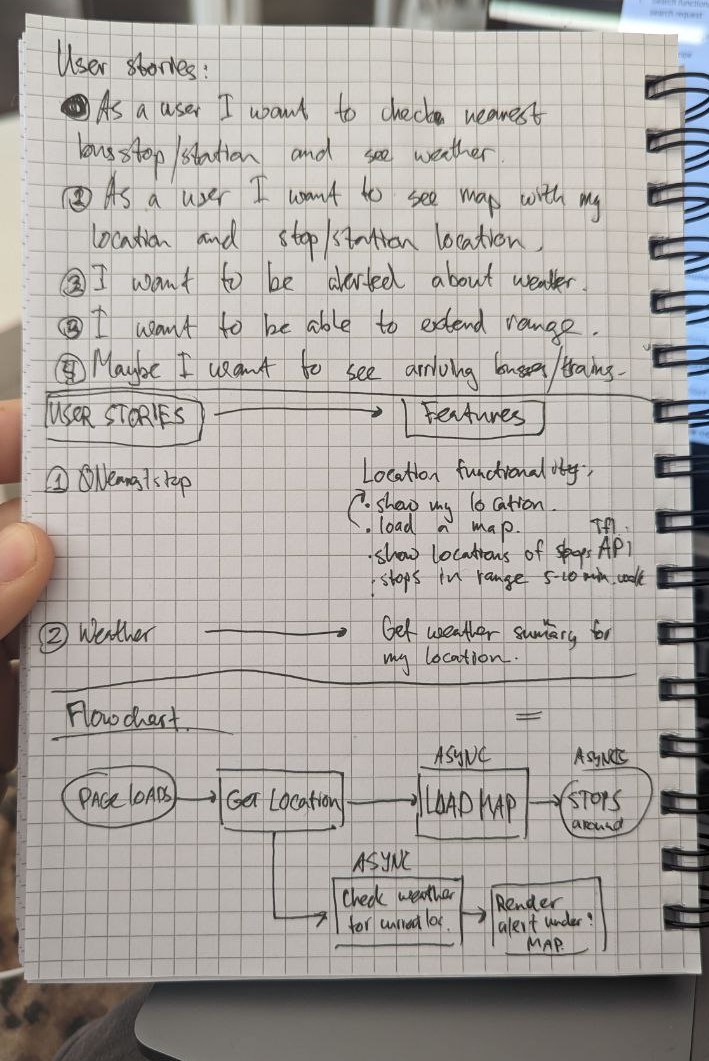 User stories:
As a user I want to check nearest
bus stop/station and see weather.
② As a user I want to see map with my
location and stop/station location.
③ I want to be alerted about weather.
③ I want to be able to extend range.
④ Maybe I want to see arriving busses/trains.
USER STORIES Features
① Nearest stop Location functionality:
· show my location.
· load a map.
· show locations of stops TFL API
· stops in range 5-10 min. walk
② Weather Get weather sumary for
my location.
Flowchart.
ASYNC ASYNC
PAGE LOADS Get Location LOAD MAP STOPS
around
ASYNC
Check weather Render
for current loc. alert under
MAP.